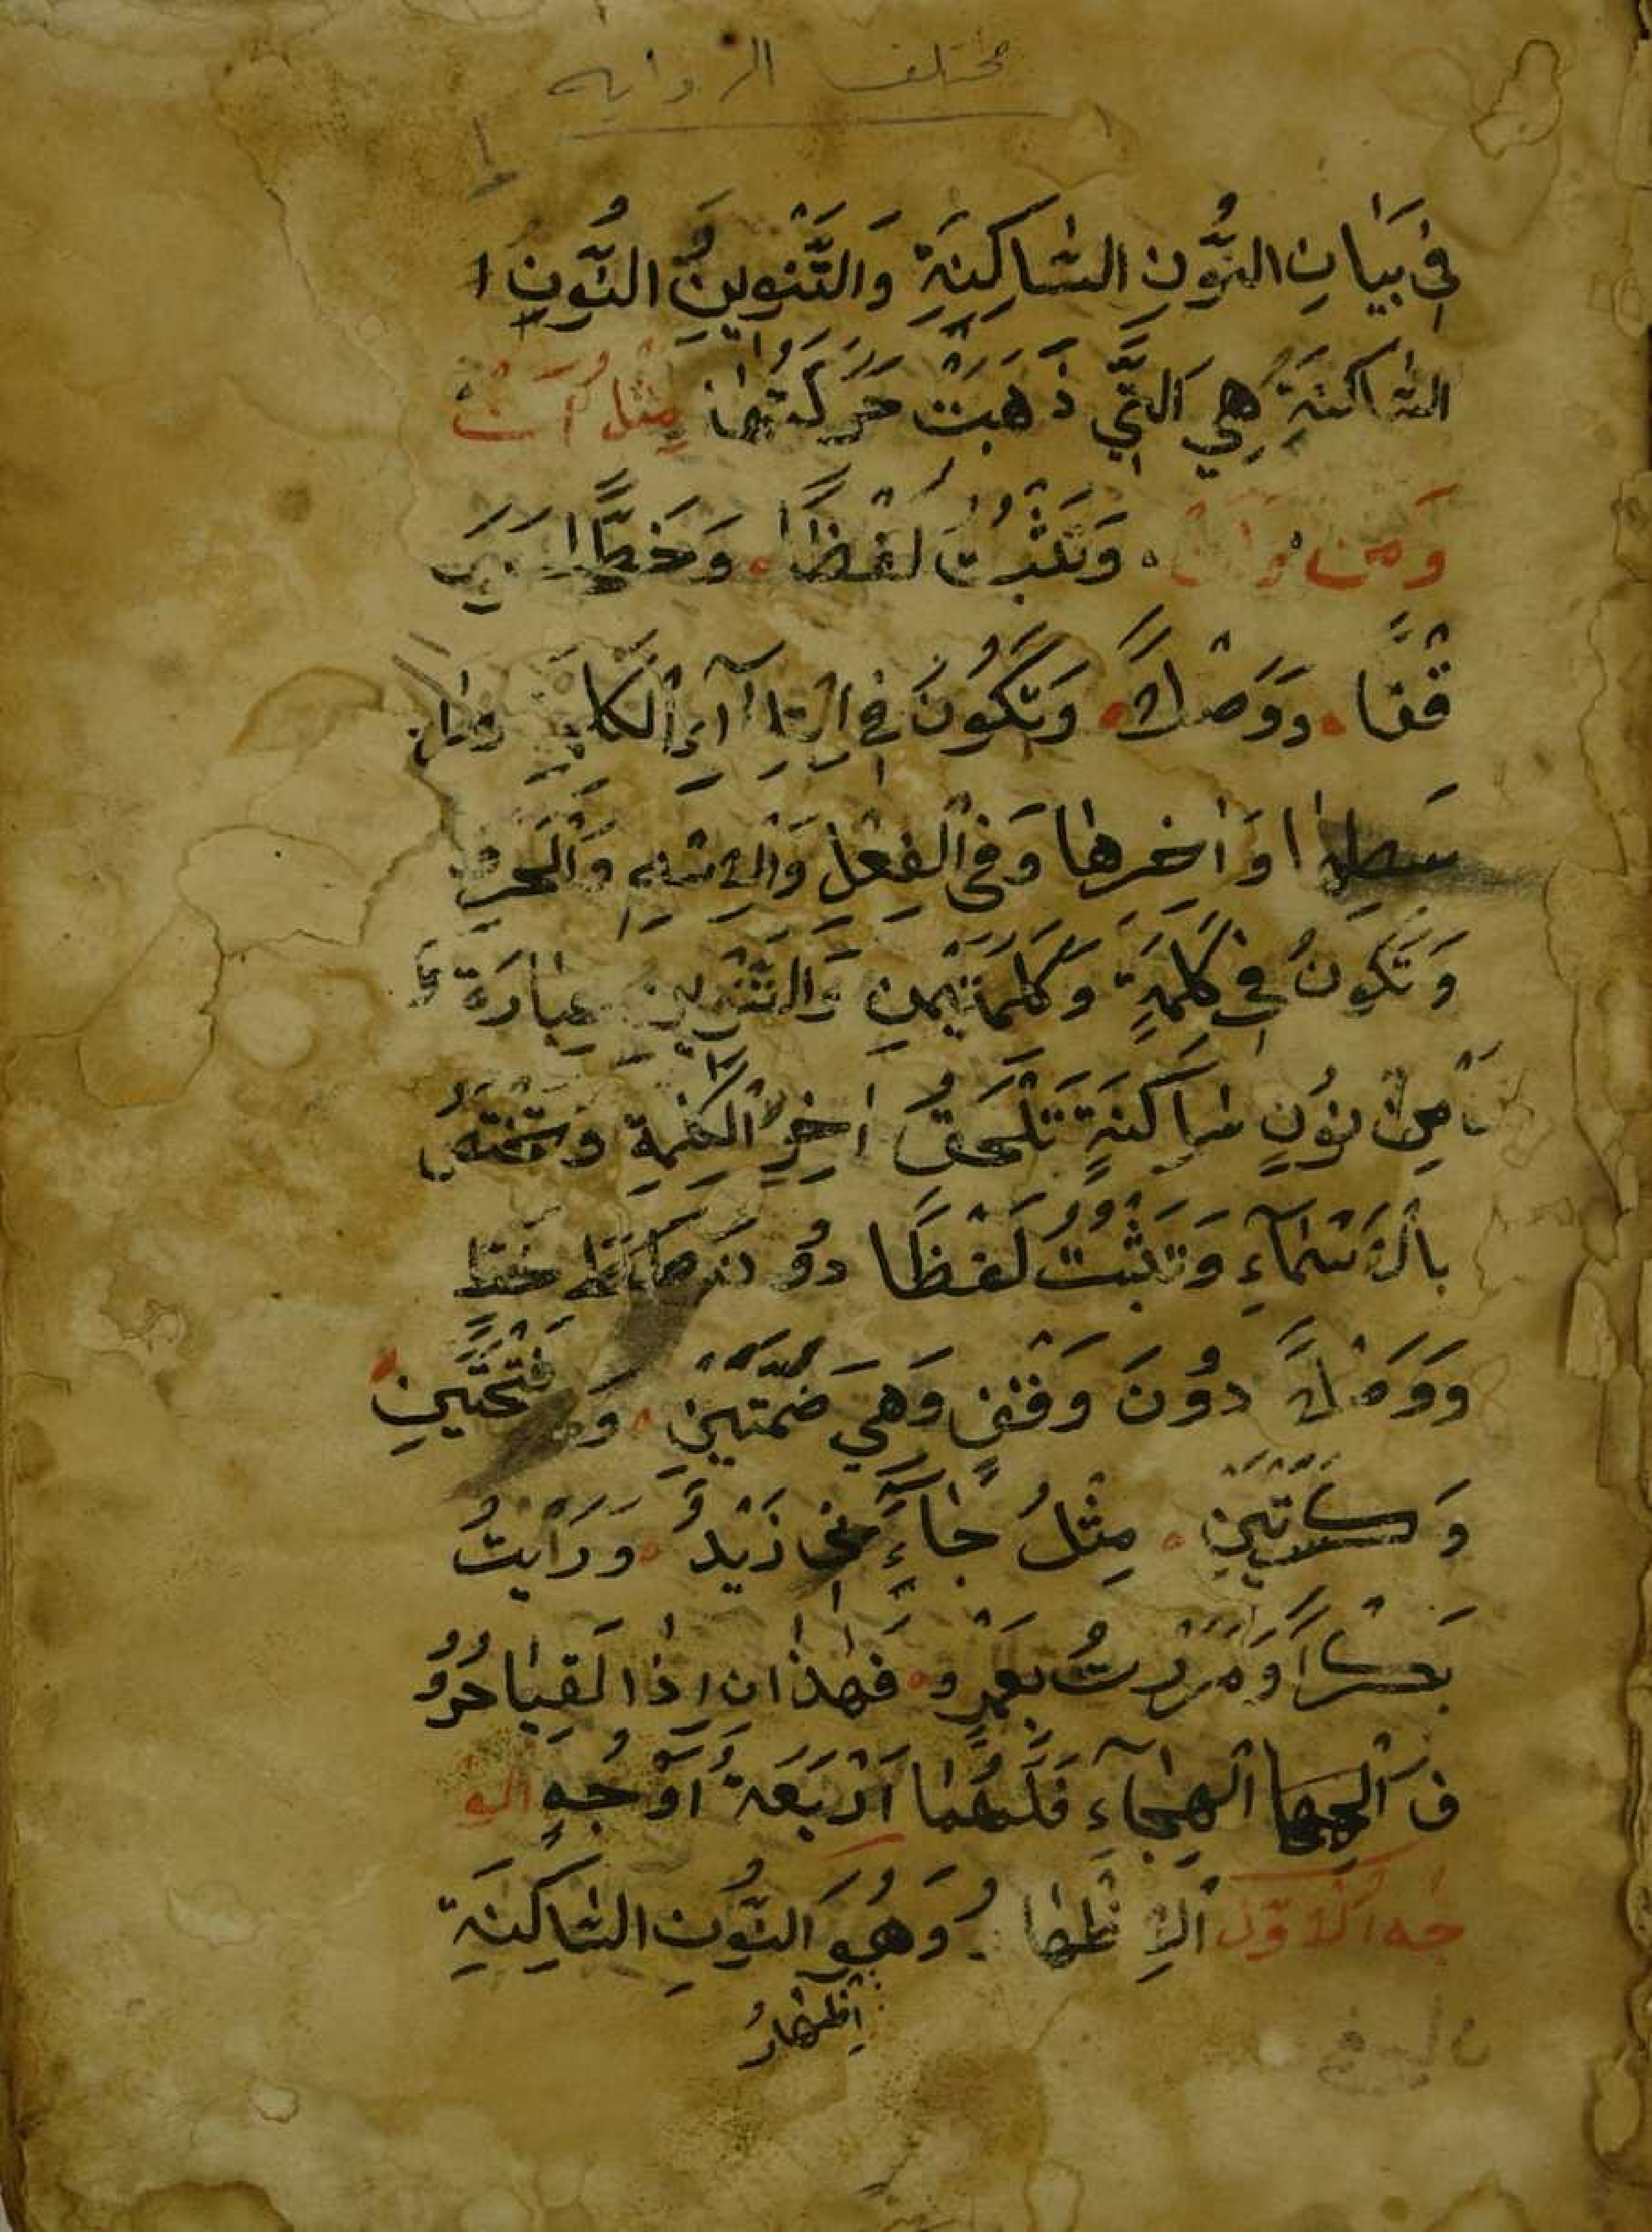 مختلف الرواية
فِي بَيَانِ النُّونِ السَّاكِنَةِ وَالتَّنْوِينُ النُّونِ ا
السَّاكِنَةِ هِيَ الَّتِي ذَهَبَتْ حَرَكَتُهَا مِثْلُ
وَمَنْ وَتَثْبُتُ لَفْظًا وَخَطًّا
قْفًا وَوَصْلًا وَتَكُونَ فِي
وَاٰخِرِهَا وَفِي الْفِعْلِ وَالْاِسْمِ وَالْحَرْفِ
وَتَكُونُ فِي كَلِمَةٍ وَكَلِمَتَيْنِ وَالتَّنْوِينُ عِبَارَةٌ
مِنْ نُونٍ سَاكِنَةٍ تَلْحَقُ اٰخِرِ الْكَلِمَةِ
بِالْاَسْمَاءِ وَتَثْبُتُ لَفْظًا دُونَ
وَوَصْلًا دُونَ وَقْفٍ وَهِيَ ضَمَّتَيْنِ وَ فَتْحَتَيْنِ
وَكَسْرَتَيْنِ مِثْلُ جَآءَنِي زَيْدٌ وَرَاَيْتُ
بَكْرًا وَمَرَرْتُ بِعَمْرٍو فَهٰذَانِ اِذَا لَقِيَا حُرُو
فَ الْهِجَآءِ فَلَهُمَا اَرْبَعَةُ اَوْجُهٍ الو
جه الْاَوَّلُ وَهُوَ النُّونِ السَّاكِنَةِ
اِظْهَارُ